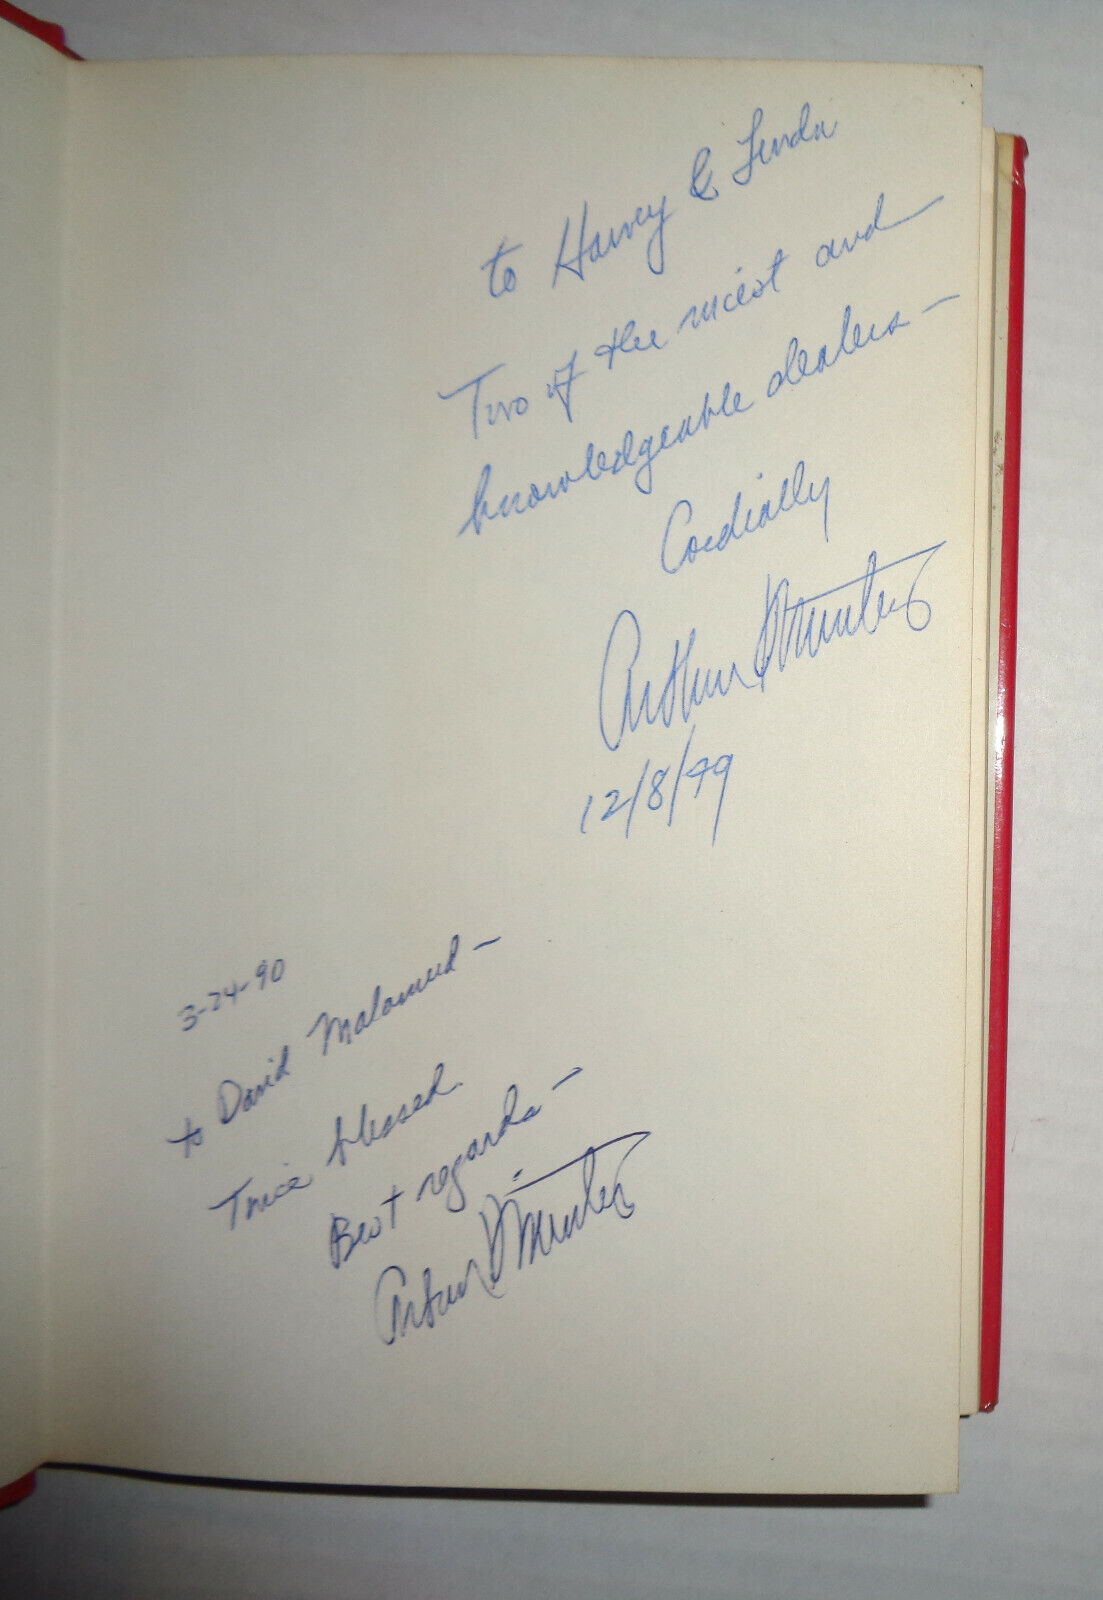 to Harvey & Linda
Two of the nicest and
knowledgeable dealers—
Cordially
Arthur Minters
12/8/79
3-24-90
to David Malamud—
Twice blessed.
Best regards—
Arthur Minters